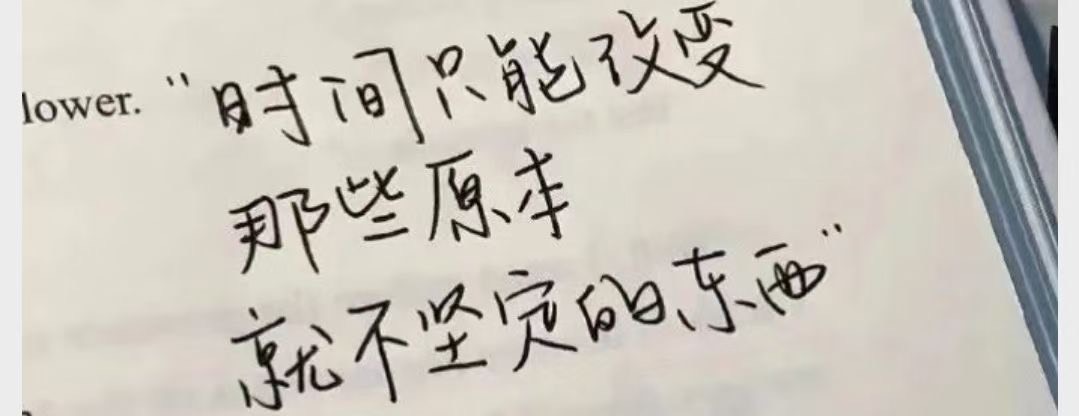 lower. "时间只能改变
那些原本
就不坚定的东西"